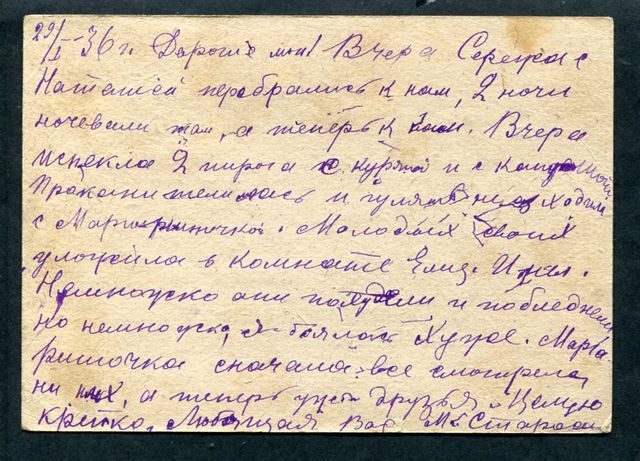 29/I-36 г. Дорогие мои! Вчера Сережа с
Наташей перебрались к нам, 2 ночи
ночевали там, а теперь к нам. Вчера
испекла 2 пирога с курячей и с
и гуля не ходили
с Маргариточкой. Молодых своих
уложила в комнате Елиз.
Немножко они похудели и побледнели
но немножко, я боялась хуже. Марга-
риточка сначала все смотрела
на них, а теперь уж друзья. Целую
крепко. Любящая Вас М.